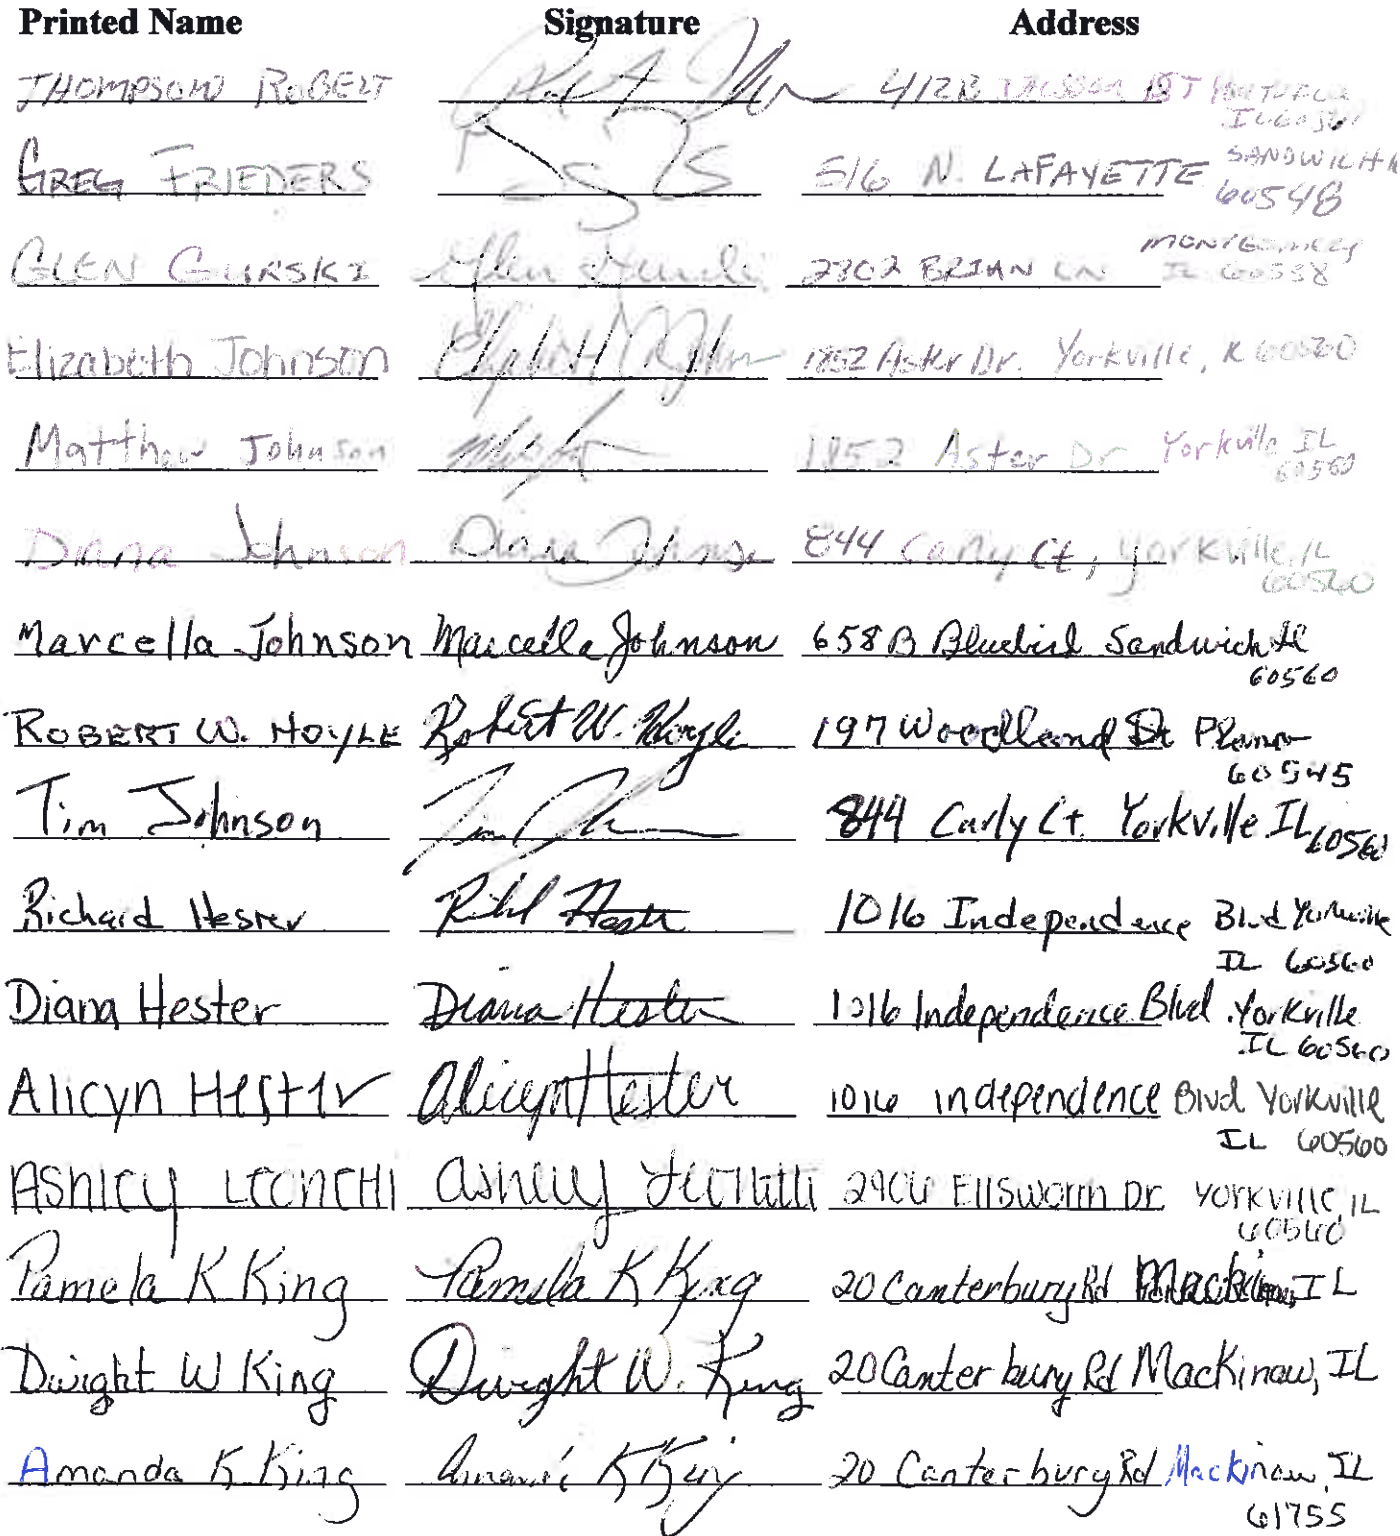 Printed Name Signature Address
THOMPSON ROBERT 412B
IL 60
GREG FRIEDERS 516 N. LAFAYETTE SANDWICH
60548
GLEN GURSKI Glen Gurski 2802 BRIAN LN MONTGOMERY
IL 60538
Elizabeth Johnson 1852 Aster Dr. Yorkville, IL 60560
Matthew Johnson 1852 Aster Dr Yorkville IL
60560
Diana Johnson Diana Johnson 844 Carly Ct, Yorkville, IL
60560
Marcella Johnson Marcella Johnson 658 B Bluebird Sandwich Il
60560
ROBERT W. HOYLE Robert W. Hoyle 197 Woodland Dr Plano
60545
Tim Johnson Tim 844 Carly Ct. Yorkville IL 60560
Richard Hester Hester 1016 Independence Blvd Yorkville
IL 60560
Diana Hester Diana Hester 1016 Independence Blvd. Yorkville
IL 60560
Alicyn Hester Alicyn Hester 1016 independence Blvd Yorkville
IL 60560
Ashley Ashley Ellsworth Dr. Yorkville, IL
60560
Pamela K King Pamela K King 20 Canterbury Rd Mackinaw, IL
Dwight W King Dwight W. King 20 Canterbury Rd Mackinaw, IL
Amanda K King Amanda K King 20 Canterbury Rd Mackinaw, IL
61755